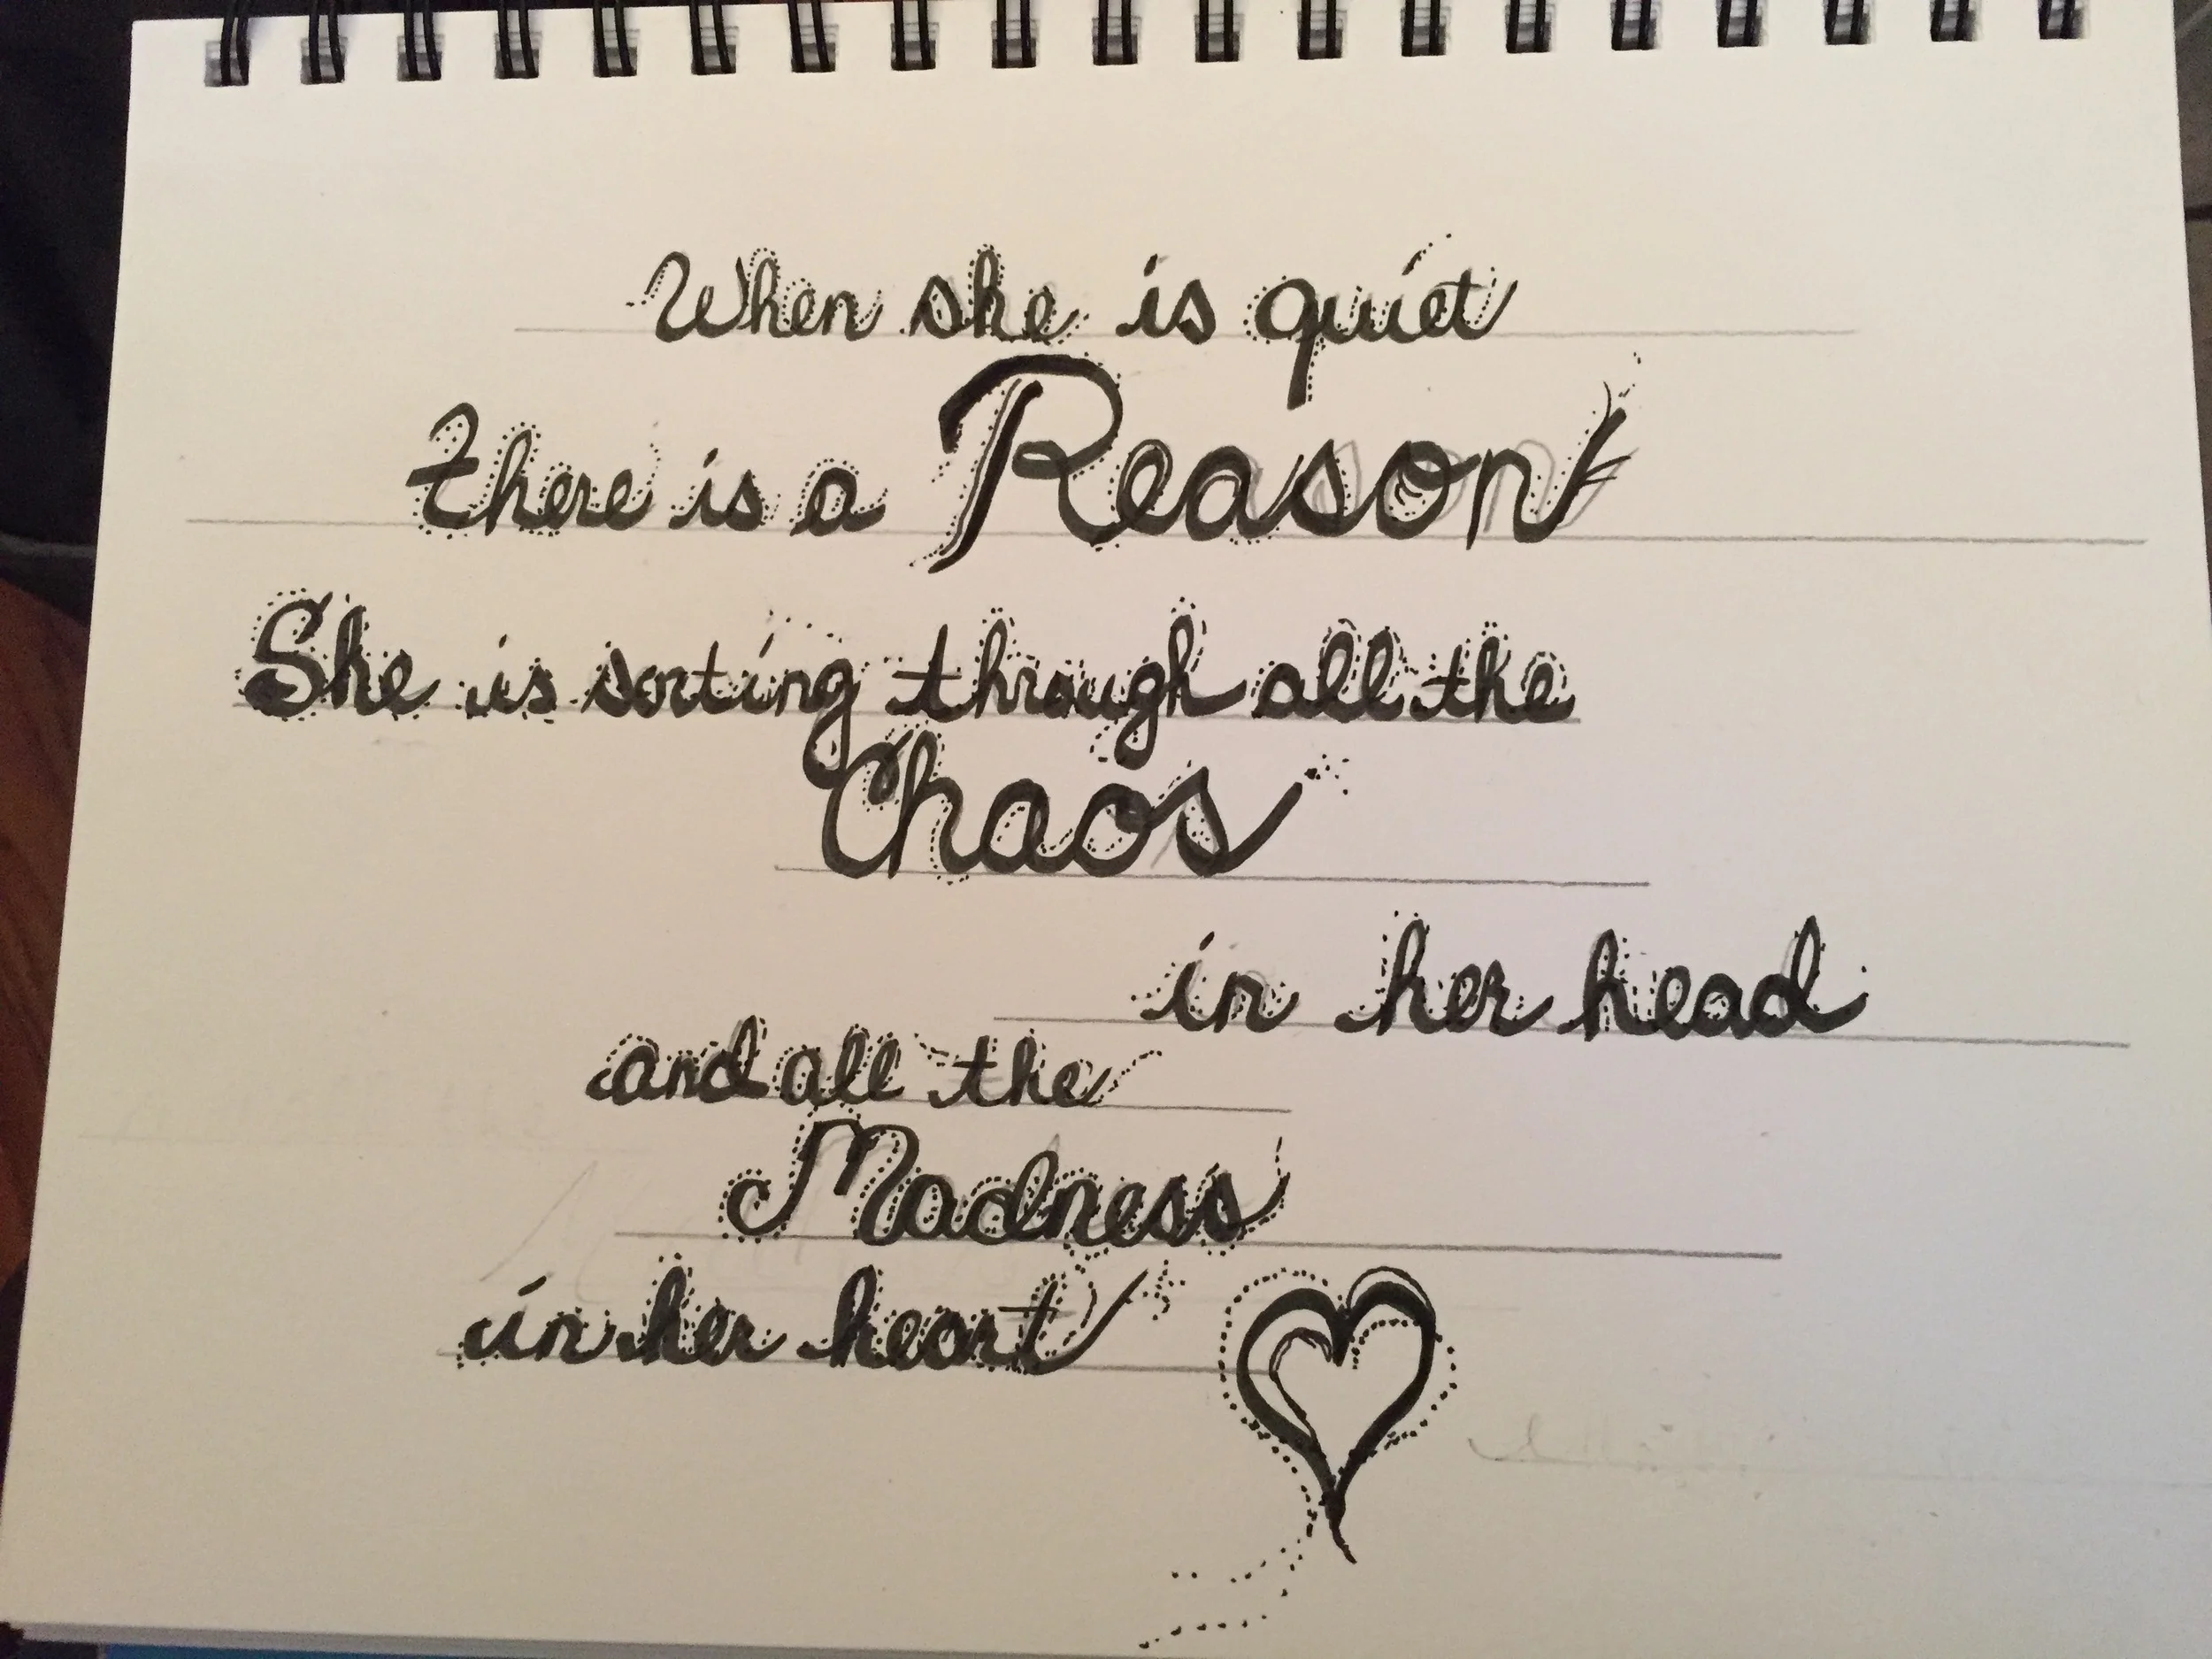 When she is quiet
there is a Reason
She is sorting through all the
Chaos
in her head
and all the
Madness
in her heart